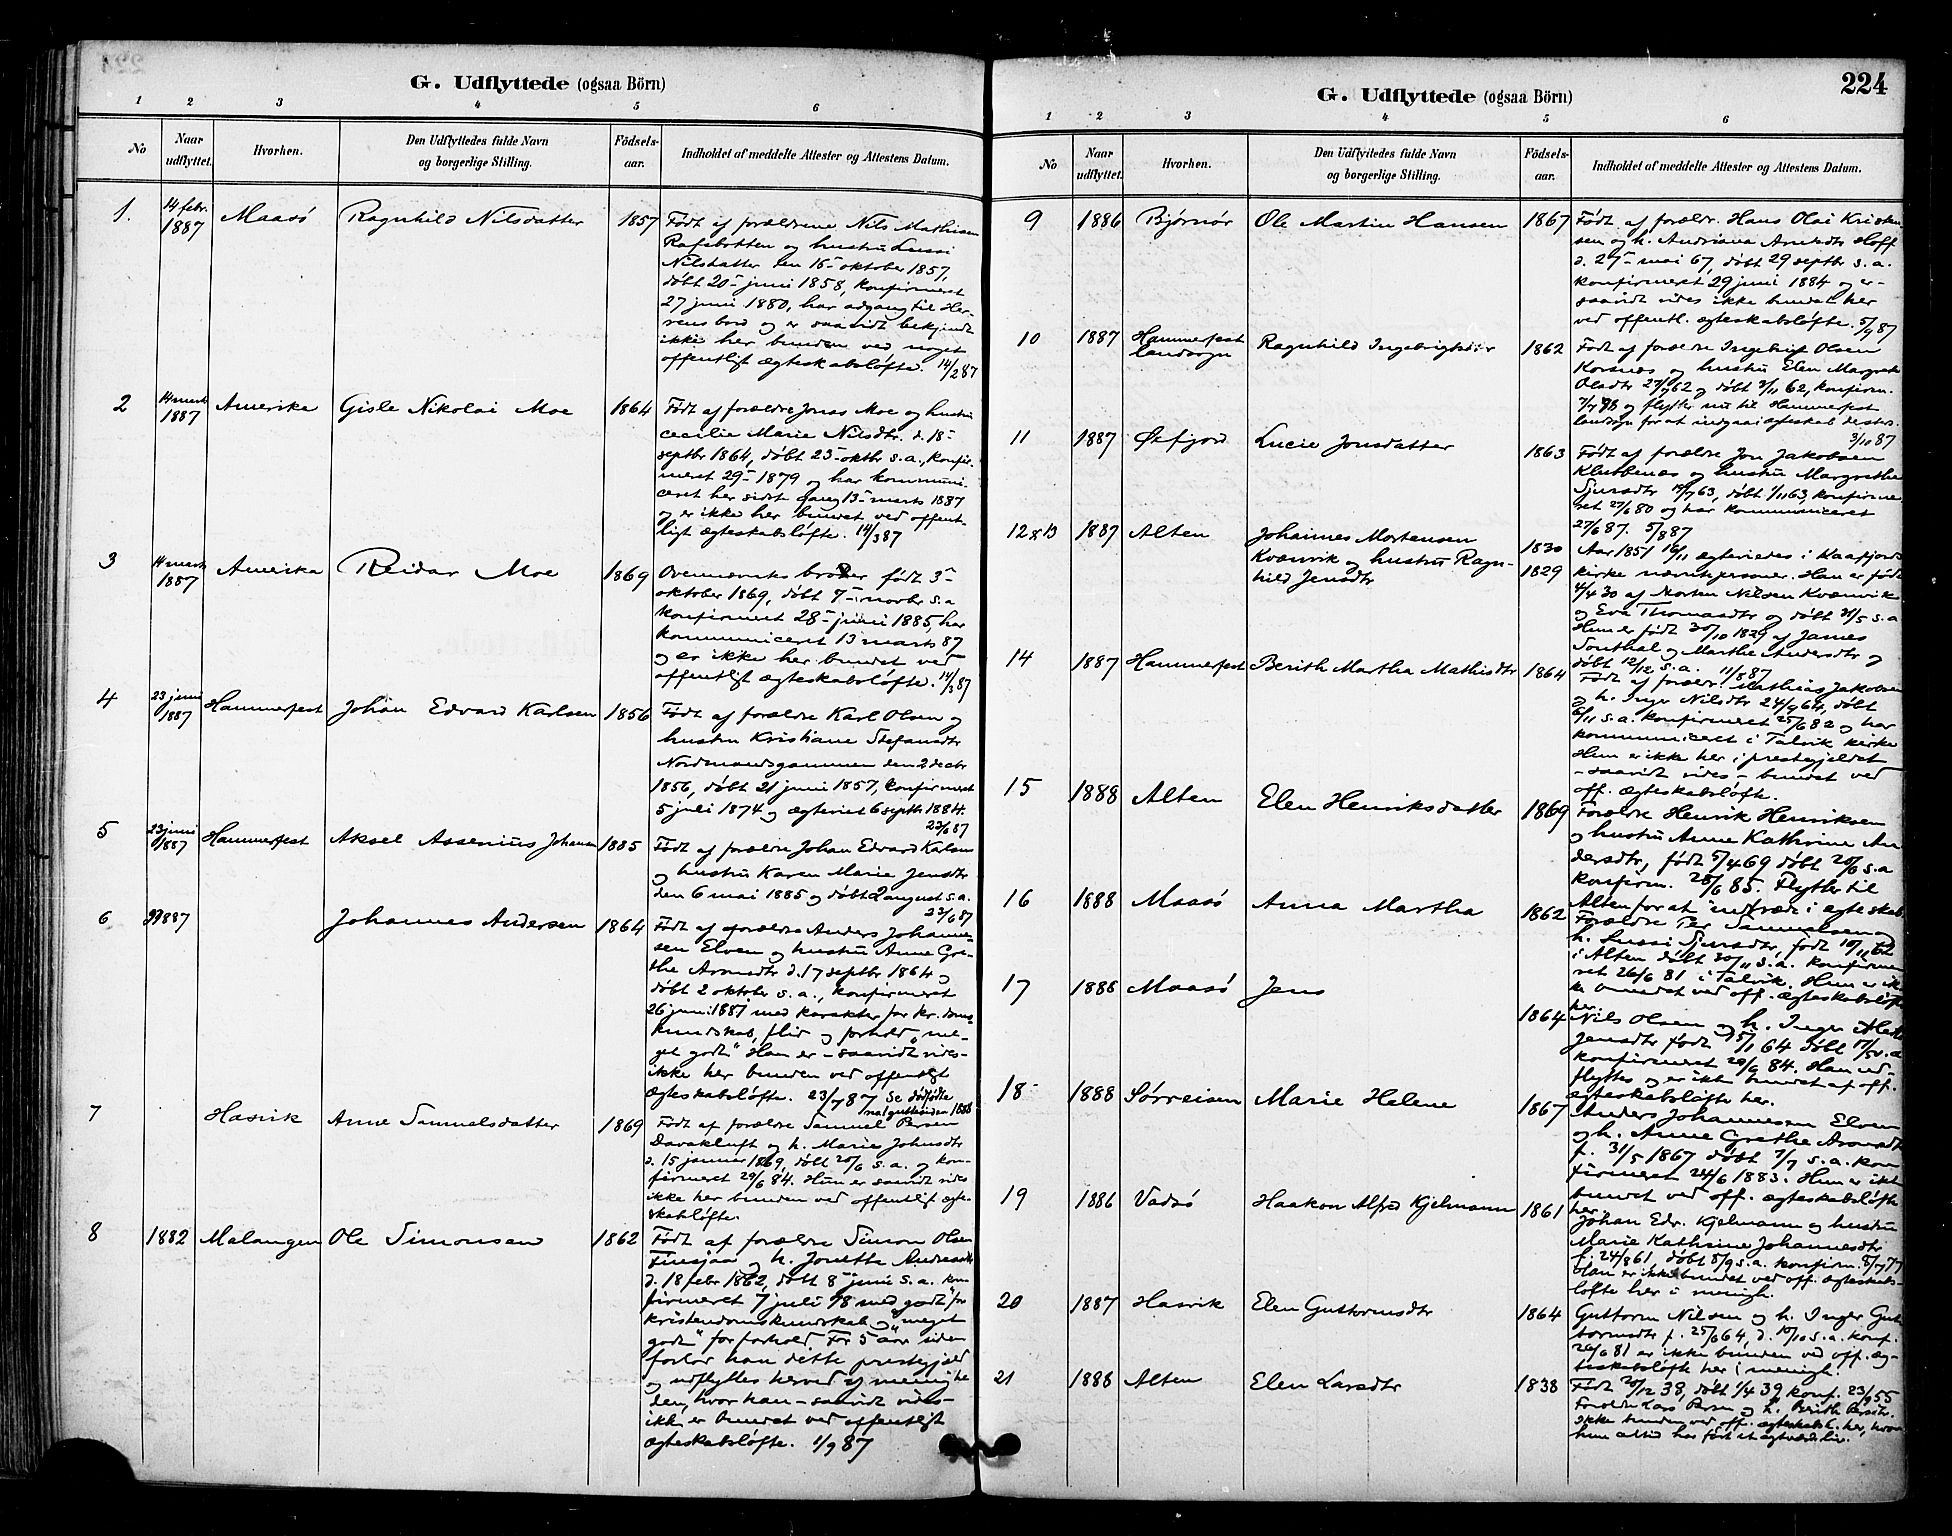 G. Udflyttede (ogsaa Börn)
1 2 3 4 5 6
No
Naar udflyttet.
Hvorhen.
Den Udflyttedes fulde Navn og borgerlige Stilling.
Födsels-aar.
Indholdet af meddelte Attester og Attestens Datum.
1. 14 febr. 1887 Maasö Ragnhild Nilsdatter 1857 Født af forældrene Nils Mathisen
Rafsbotten og hustru Lussi
Nilsdatter den 16 oktober 1857,
døbt 20 juni 1858, konfirmeret
27 juni 1880, har adgang til Her-
rens bord og er saavidt bekjendt
ikke her bunden ved noget
offentligt ægteskabsløfte. 14/2 87
2 14 marts 1887 Amerika Gisle Nikolai Moe 1864 Født af forældre Jonas Moe og hustru
Cecilie Marie Nilsdtr. d. 18
septbr 1864, døbt 23 oktbr s.a., konfir-
meret 29 1879 og har kommuni-
ceret her sidste gang 13 marts 1887
og er ikke her bundet ved offent-
ligt ægteskabsløfte. 14/3 87
3 14 marts 1887 Amerika Reidar Moe 1869 Ovennævntes broder født 3
oktober 1869, døbt 7 novbr s.a
konfirmeret 28 juni 1885, har
kommuniceret 13 marts 87
og er ikke her bundet ved
offentligt ægteskabsløfte. 14/3 87
4 23 juni 1887 Hammerfest Johan Edvard Karlsen 1856 Født af forældre Karl Olsen og
hustru Kristiane Stefansdtr
Nordmandsgammen den 2 decbr
1856, døbt 21 juni 1857, konfirmeret
5 juli 1874 og ægteviet 6 septbr 1884.
23/6 87
5 23 juni 1887 Hammerfest Aksel Assenius Johansen 1885 Født af forældre Johan Edvard Karlsen
og hustru Karen Marie Jensdtr
den 6 mai 1885 og døbt 2 august s.a.
23/6 87
6 1887 Johannes Andersen 1864 Født af forældre Anders Johanne-
sen Elven og hustru Anne Gre-
the Aronsdtr d. 17 septbr 1864 og
døbt 2 oktober s.a., konfirmeret
26 juni 1881 med karakter for kr.doms-
kundskab, flid og forhold "me-
get godt" Han er - saavidt vides -
ikke her bunden ved offentligt
ægteskabsløfte. 23/7 87 Se dødfødte
7 Hasvik Anne Samuelsdatter 1869 Født af forældre Samuel Persen
Davakluft og h. Marie Johnsdtr
d. 15 januar 1869, døbt 20/6 s.a. og kon-
firmeret 29/6 84. Hun er saavidt vides
ikke her bunden ved offentligt ægte-
skabsløfte.
8 1882 Malangen Ole Simonsen 1862 Født af forældre Simon Olsen
og h. Jonetta Andreasdtr
d. 18 febr 1862, døbt 8 juni s.a. kon
firmeret 7 juli 78 med "godt" for
kristendomskundskab og "meget
godt" for forhold. For 5 aar siden
forlod han dette prestegjæld
og udflyttes herved af menighe
den, hvor han - saavidt vides -
ikke er bundet ved offentligt
ægteskabsløfte. 1/9 87
224
G. Udflyttede (ogsaa Börn)
1 2 3 4 5 6
No
Naar udflyttet.
Hvorhen.
Den Udflyttedes fulde Navn og borgerlige Stilling.
Födsels-aar.
Indholdet af meddelte Attester og Attestens Datum.
9 1886 Bjørnør Ole Martin Hansen 1867 Født af forældr. Hans Olai Kristen
sen og h. Andriana Arntsdtr Hoff
d. 27 mai 67, døbt 29 septbr s.a.
konfirmeret 29 juni 1884 og er -
saavidt vides ikke bundet her
ved offentl. ægteskabsløfte. 5/9 87
10 1887 Hammerfest landsogn Ragnhild Ingebrigtsdtr 1862 Født af forældre Ingebrigt Olsen
Korsnes og hustru Elen Margrete
Olsdtr 27/7 62 og døbt 2/11 62, konfirm.
7/7 78 og flytter nu til Hammerfest
landsogn for at indgaa i ægteskab dersteds.
3/10 87
11 1887 Øxfjord Lucie Jonsdatter 1863 Født af forældre Jon Jakobsen
Klubbenæs og hustru Margrethe
Sjursdtr 19/7 63, døbt 1/11 63, konfirme-
ret 27/6 80 og har kommuniceret
27/6 87. 5/8 87
12 & 13 1887 Alten Johannes Mortensen
Kvænvik og hustru Ragn-
hild Jensdtr
1830
1829
Aar 1851 16/11 ægteviedes i Kaafjords
kirke nævnte personer. Han er født
4/4 30 af Morten Nilsen Kvænvik
og Eva Thomasdtr og døbt 31/5 s.a
Hun er født 30/10 1829 af James
Southal og Marthe Andersdtr og
døbt 12/12 s.a. 11/8 87
14 1887 Hammerfest Berith Martha Mathisdtr 1864 Født af forældr. Mathias Jakobsen
og h. Inger Nilsdtr 24/9 64, døbt
6/11 s.a. konfirmeret 25/6 82 og har
kommuniceret i Talvik kirke
Hun er ikke her i prestegjeldet
- saavidt vides - bundet ved
off. ægteskabsløfte.
15 1888 Alten Elen Henriksdatter 1869 Forældre Henrik Henriksen
og hustru Anne Kathrine An
dersdtr, født 5/4 69 døbt 20/6 s.a
konfirm. 28/6 85. Flytter til
Alten for at indtræde i ægteskab.
16 1888 Maasö Anna Martha 1862 Forældre Per Samuelsen og
h. Lussi Sjursdtr, født 10/11 62
i Alten døbt 30/11 s.a. konfirme
ret 26/6 81 i Talvik. Hun er ik
ke bundet ved off. ægteskabsløfte
her.
17 1888 Maasö Jens 1864 Nils Olsen og h. Inger
Jensdtr født 15/1 64 døbt
konfirmeret 29/6 84. Han ud-
flyttes og er ikke bundet af off.
ægteskabsløfte her.
18 1888 Sørreisen Marie Helene 1867 Anders Johannesen Elven
og h. Anne Grethe Aronsdtr
f. 31/5 1867 døbt 7/7 s.a. kon
firmeret 24/6 1883. Hun er ikke
bundet ved off. ægteskabsløfte
her.
19 1886 Vadsö Haakon Alfred Kjelmann 1861 Johan Edv. Kjelmann og hustru
Marie Kathrine Johannesdtr
f. 24/8 61, døbt 8/9 s.a. konfirm. 8/7 77
Han er ikke bundet ved off. ægteskabs-
løfte her i menigh.
20 1887 Hasvik Elen Guttormsdtr 1864 Guttorm Nilsen og h. Inger Gut
tormsdtr f. 25/6 64, d. 10/10 s.a. konf.
26/6 81 er ikke bunden ved off. æg-
teskabsløfte her i menigh.
21 1888 Alten Elen Larsdtr 1838 Født 20/12 38, døbt 1/4 39 konf. 23/9 55
Forældre Lars Persen og h. Berith Persdtr.
Ikke bunden ved off. ægteskabsl. her, hvor
hun altid har ført et agtværdt liv.